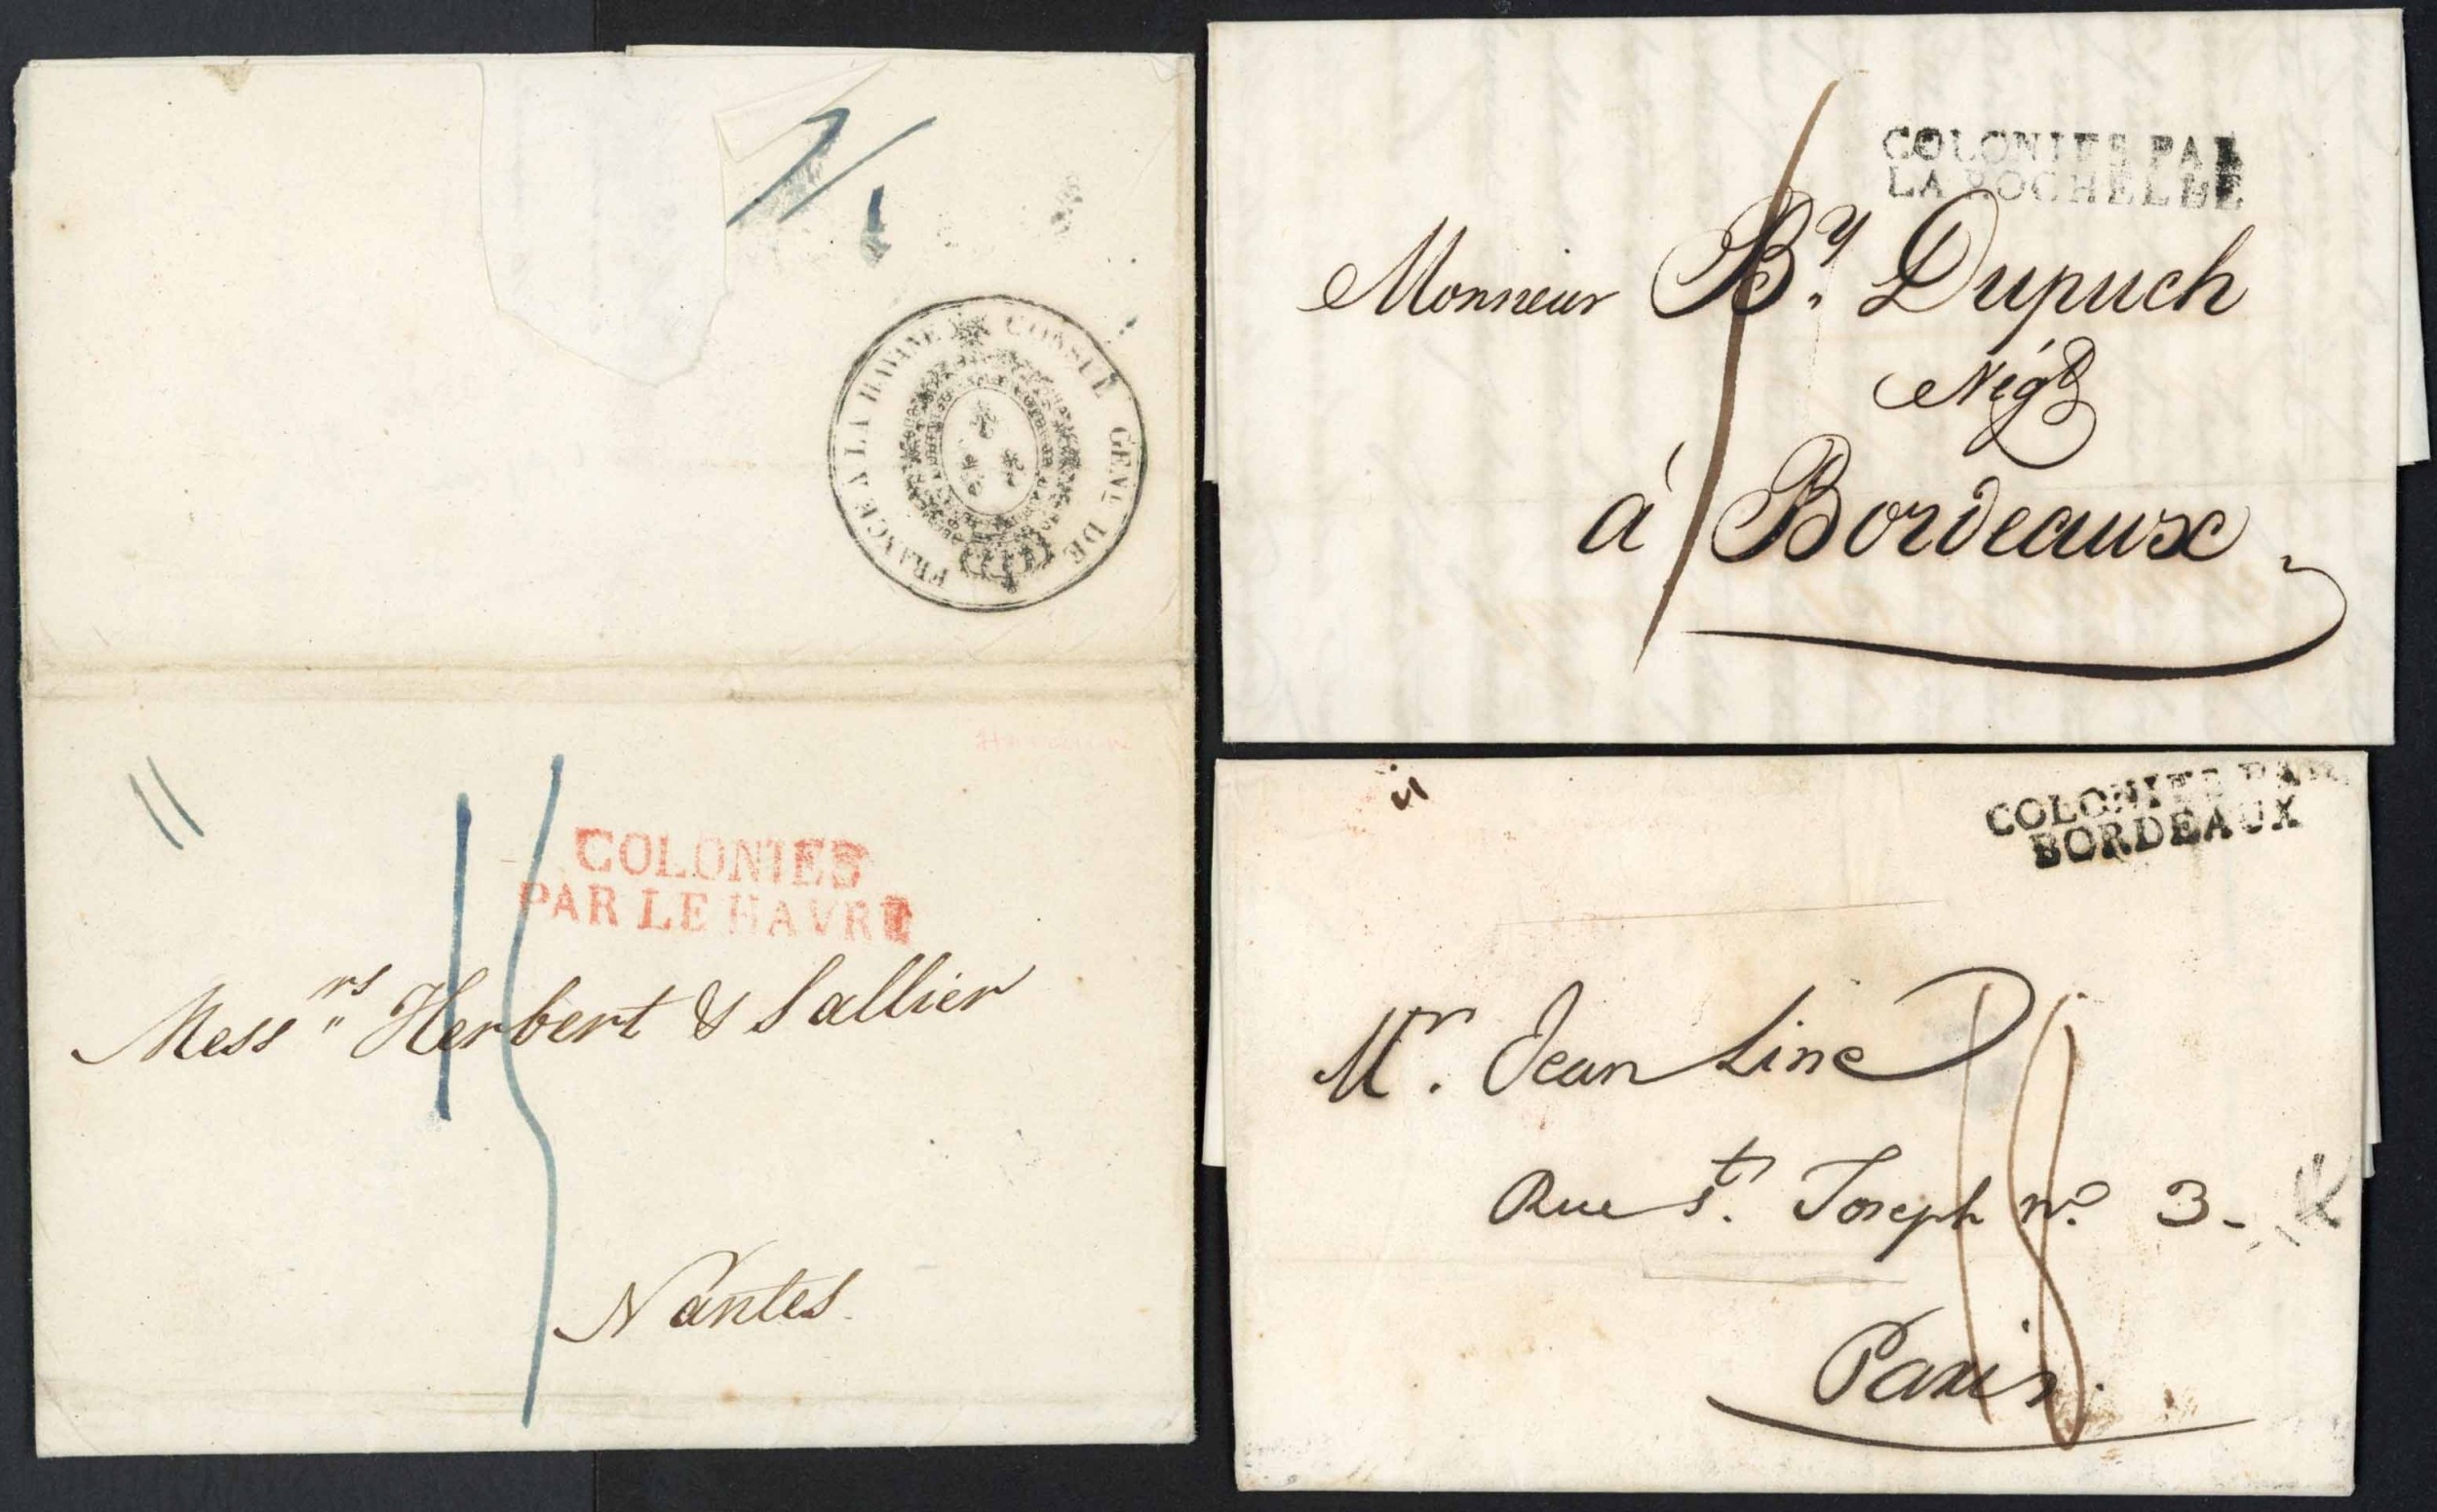 CONSUL GENL DE FRANCE A LA HAVANE
11
15
COLONIES
PAR LE HAVRE
Messrs Herbert & Sallier
Nantes
COLONIES PAR
LA ROCHELLE
Monsieur By Dupuch
Négt
à Bordeaux
COLONIES PAR
BORDEAUX
Mr. Jean Line
Rue St. Joseph no 3-
Paris
18